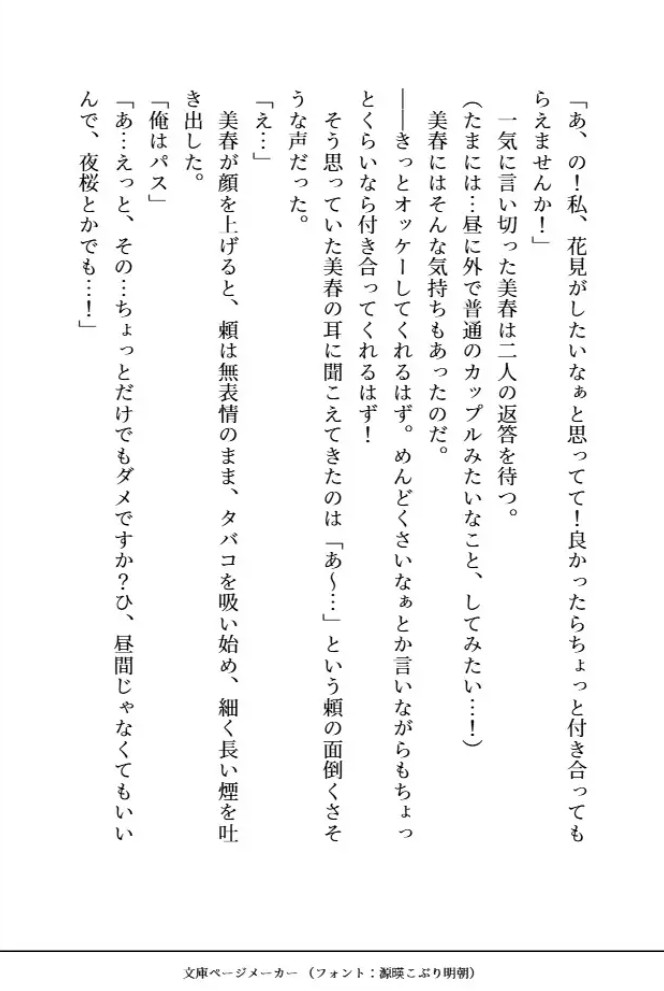 「あ、の！私、花見がしたいなぁと思ってて！良かったらちょっと付き合っても
らえませんか！」
　一気に言い切った美春は二人の返答を待つ。
（たまには…昼に外で普通のカップルみたいなこと、してみたい…！）
　美春にはそんな気持ちもあったのだ。
――きっとオッケーしてくれるはず。めんどくさいなぁとか言いながらもちょっ
とくらいなら付き合ってくれるはず！
　そう思っていた美春の耳に聞こえてきたのは「あ～…」という頼の面倒くさそ
うな声だった。
「え…」
　美春が顔を上げると、頼は無表情のまま、タバコを吸い始め、細く長い煙を吐
き出した。
「俺はパス」
「あ…えっと、その…ちょっとだけでもダメですか？ひ、昼間じゃなくてもいい
んで、夜桜とかでも…！」
文庫ページメーカー（フォント：源暎こぶり明朝）